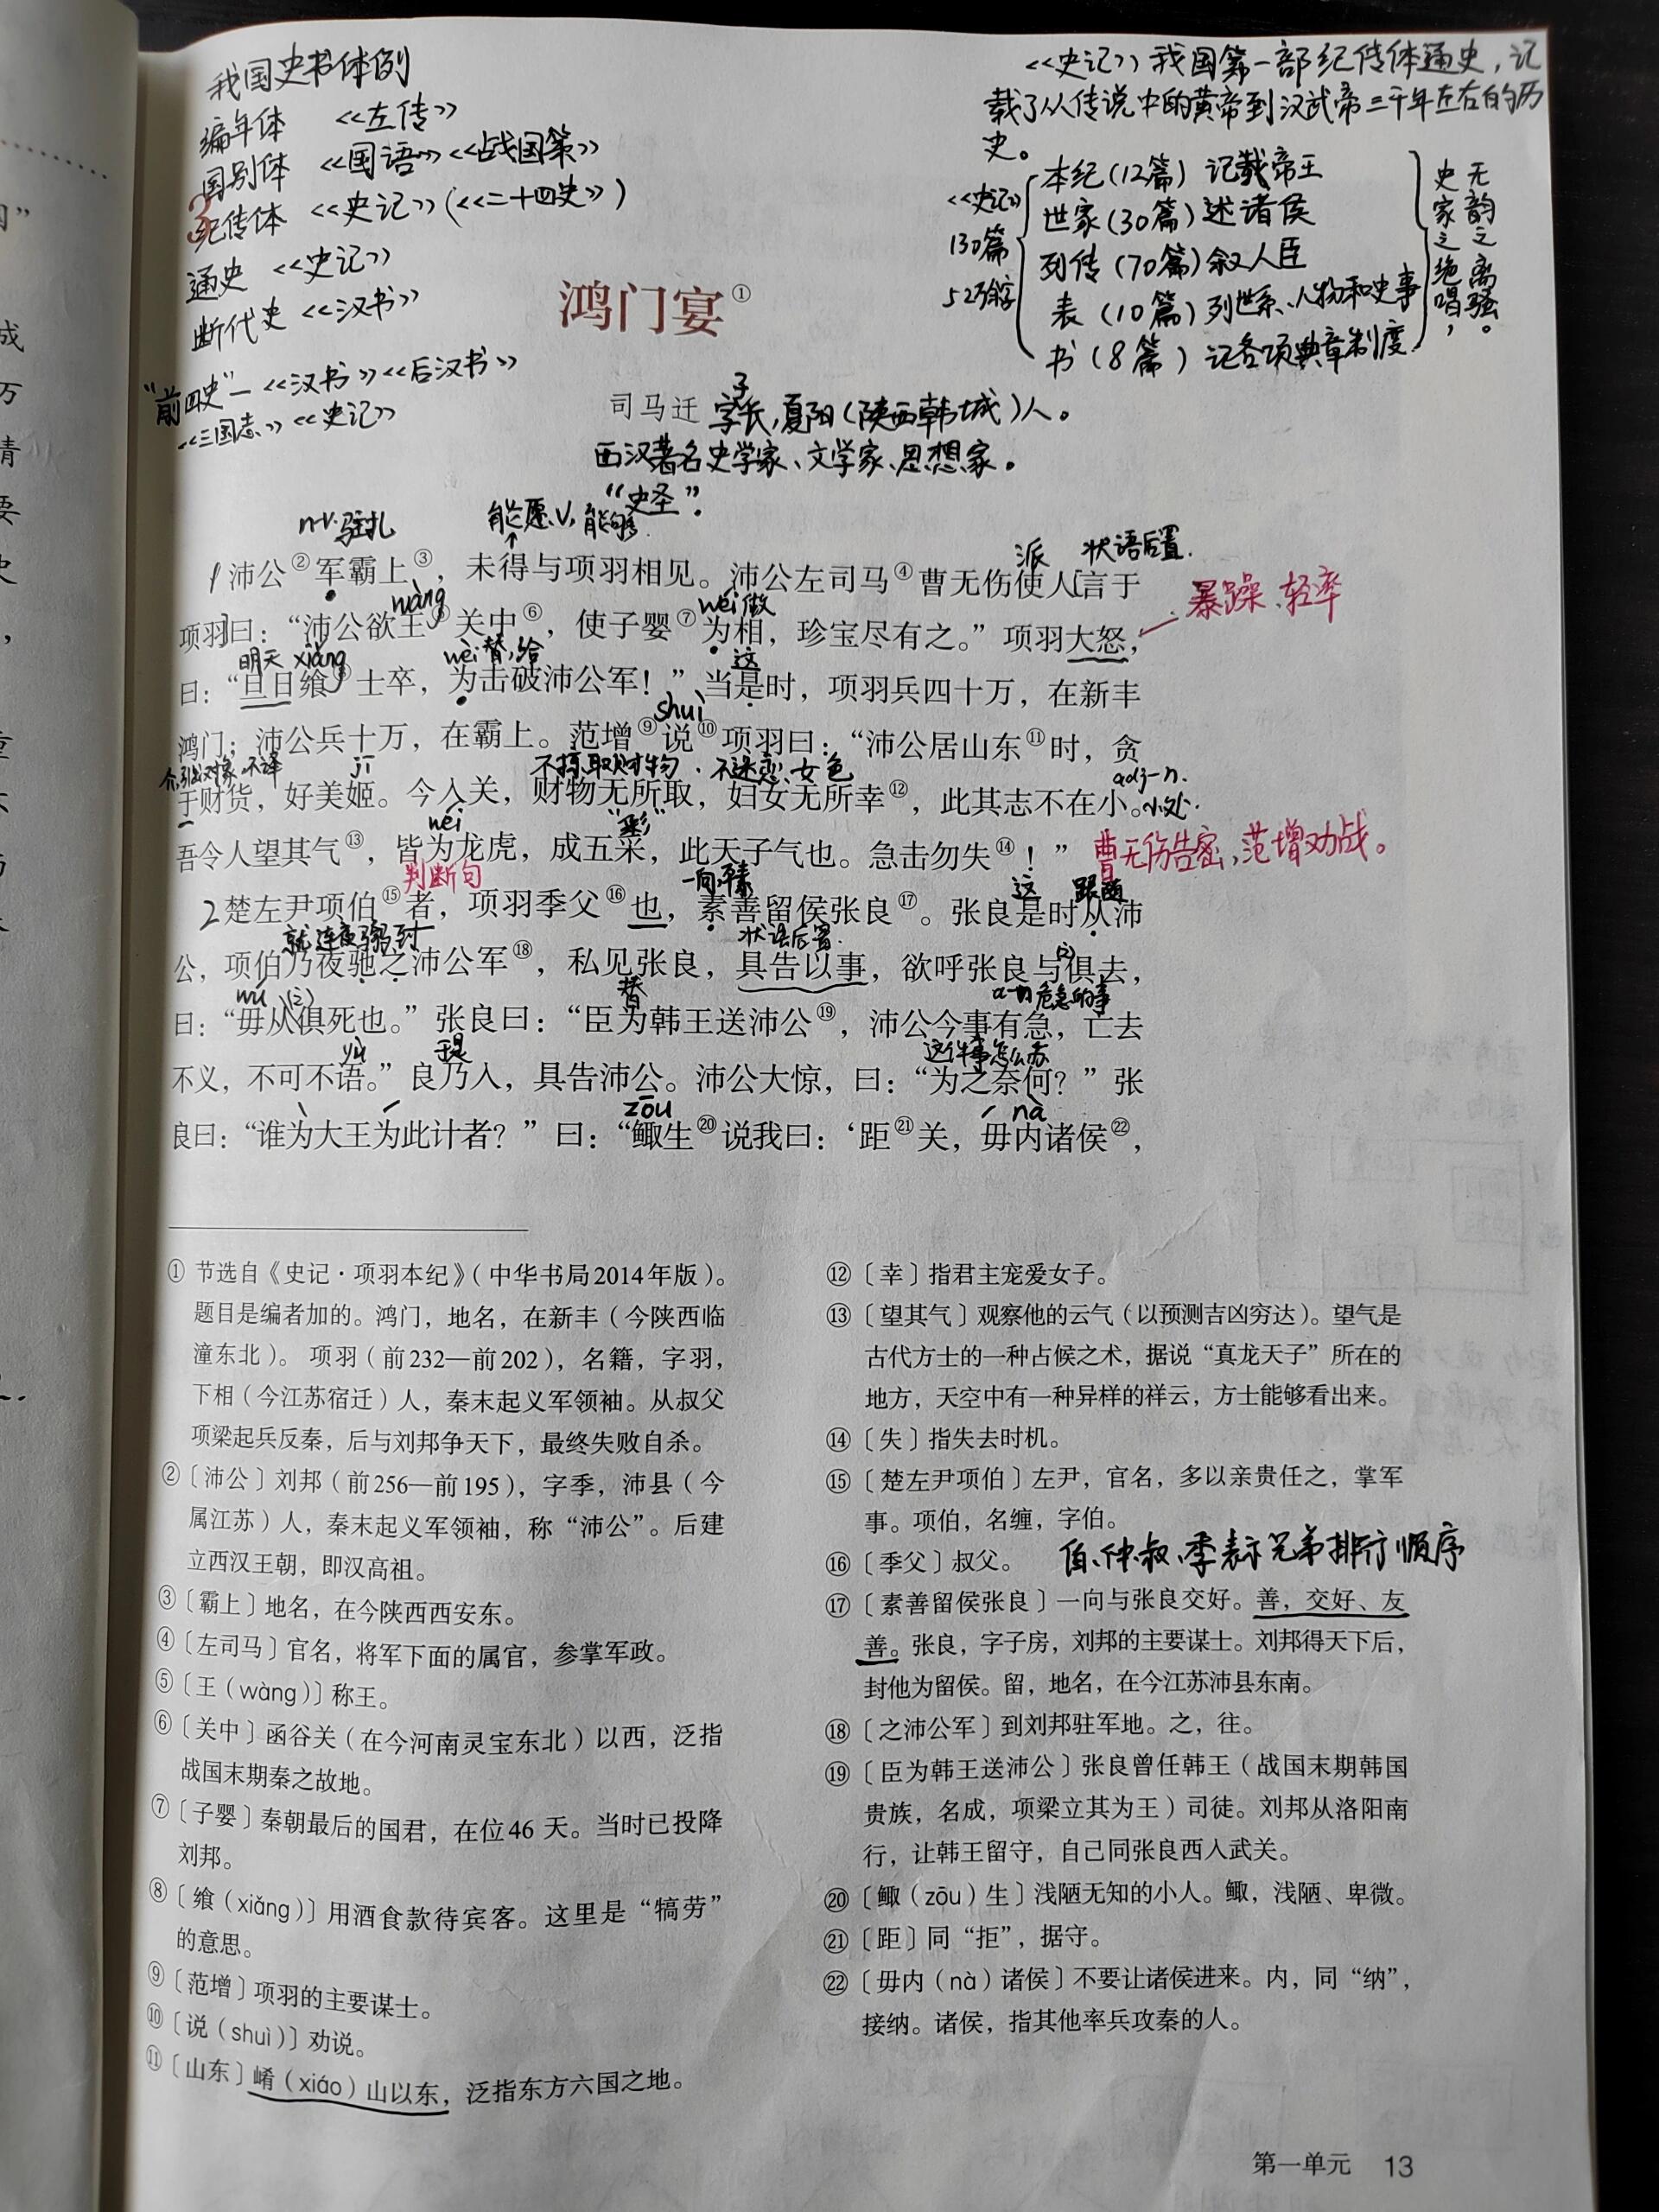 我国史书体例
编年体 《左传》
国别体 《国语》《战国策》
纪传体 《史记》(《二十四史》)
通史 《史记》
断代史 《汉书》
“前四史”—《汉书》《后汉书》
《三国志》《史记》
《史记》我国第一部纪传体通史,记
载了从传说中的黄帝到汉武帝三千年左右的历
史。
《史记》
130篇
52万余字
本纪(12篇) 记载帝王
世家(30篇) 述诸侯
列传(70篇) 叙人臣
表(10篇) 列世系、人物和史事
书(8篇) 记各项典章制度
史家之绝唱,
无韵之离骚。
3
鸿门宴①
司马迁 字子长,夏阳(陕西韩城)人。
西汉著名史学家、文学家、思想家。
“史圣”。
n-v.驻扎 能愿V,能够 派 状语后置.
1 沛公②军霸上③，未得与项羽相见。沛公左司马④曹无伤使人[言于
wàng wéi做 暴躁、轻率
项羽]曰：“沛公欲王⑤关中⑥，使子婴⑦为相，珍宝尽有之。”项羽大怒，
明天 xiǎng wèi替,给 这
曰：“旦日飨⑧士卒，为击破沛公军！”当是时，项羽兵四十万，在新丰
shuì
鸿门；沛公兵十万，在霸上。范增⑨说⑩项羽曰：“沛公居山东⑪时，贪
介,引出对象,不译 jī 不掠取财物.不迷恋女色 adj-n.
于财货，好美姬。今入关，财物无所取，妇女无所幸⑫，此其志不在小。小处.
wéi “彩”
吾令人望其气⑬，皆为龙虎，成五采，此天子气也。急击勿失⑭！” 曹无伤告密,范增劝战。
判断句 一向,平素 这 跟随
2 楚左尹项伯⑮者，项羽季父⑯也，素善留侯张良⑰。张良是时从沛
就 连夜 骑马 到 状语后置.
公，项伯乃夜驰之沛公军⑱，私见张良，具告以事，欲呼张良与俱去，
wú 替 危急的事
曰：“毋从俱死也。”张良曰：“臣为韩王送沛公⑲，沛公今事有急，亡去
yù 于是 这件事怎么办
不义，不可不语。”良乃入，具告沛公。沛公大惊，曰：“为之奈何？”张
zōu nà
良曰：“谁为大王为此计者？”曰：“鲰生⑳说我曰：‘距㉑关，毋内诸侯㉒，
① 节选自《史记·项羽本纪》（中华书局2014年版）。
题目是编者加的。鸿门，地名，在新丰（今陕西临
潼东北）。项羽（前232—前202），名籍，字羽，
下相（今江苏宿迁）人，秦末起义军领袖。从叔父
项梁起兵反秦，后与刘邦争天下，最终失败自杀。
②〔沛公〕刘邦（前256—前195），字季，沛县（今
属江苏）人，秦末起义军领袖，称“沛公”。后建
立西汉王朝，即汉高祖。
③〔霸上〕地名，在今陕西西安东。
④〔左司马〕官名，将军下面的属官，参掌军政。
⑤〔王（wàng）〕称王。
⑥〔关中〕函谷关（在今河南灵宝东北）以西，泛指
战国末期秦之故地。
⑦〔子婴〕秦朝最后的国君，在位46 天。当时已投降
刘邦。
⑧〔飨（xiǎng）〕用酒食款待宾客。这里是“犒劳”
的意思。
⑨〔范增〕项羽的主要谋士。
⑩〔说（shuì）〕劝说。
⑪〔山东〕崤（xiáo）山以东，泛指东方六国之地。
⑫〔幸〕指君主宠爱女子。
⑬〔望其气〕观察他的云气（以预测吉凶穷达）。望气是
古代方士的一种占候之术，据说“真龙天子”所在的
地方，天空中有一种异样的祥云，方士能够看出来。
⑭〔失〕指失去时机。
⑮〔楚左尹项伯〕左尹，官名，多以亲贵任之，掌军
事。项伯，名缠，字伯。
⑯〔季父〕叔父。 伯、仲、叔、季表示兄弟排行顺序
⑰〔素善留侯张良〕一向与张良交好。善，交好、友
善。张良，字子房，刘邦的主要谋士。刘邦得天下后，
封他为留侯。留，地名，在今江苏沛县东南。
⑱〔之沛公军〕到刘邦驻军地。之，往。
⑲〔臣为韩王送沛公〕张良曾任韩王（战国末期韩国
贵族，名成，项梁立其为王）司徒。刘邦从洛阳南
行，让韩王留守，自己同张良西入武关。
⑳〔鲰（zōu）生〕浅陋无知的小人。鲰，浅陋、卑微。
㉑〔距〕同“拒”，据守。
㉒〔毋内（nà）诸侯〕不要让诸侯进来。内，同“纳”，
接纳。诸侯，指其他率兵攻秦的人。
第一单元 13